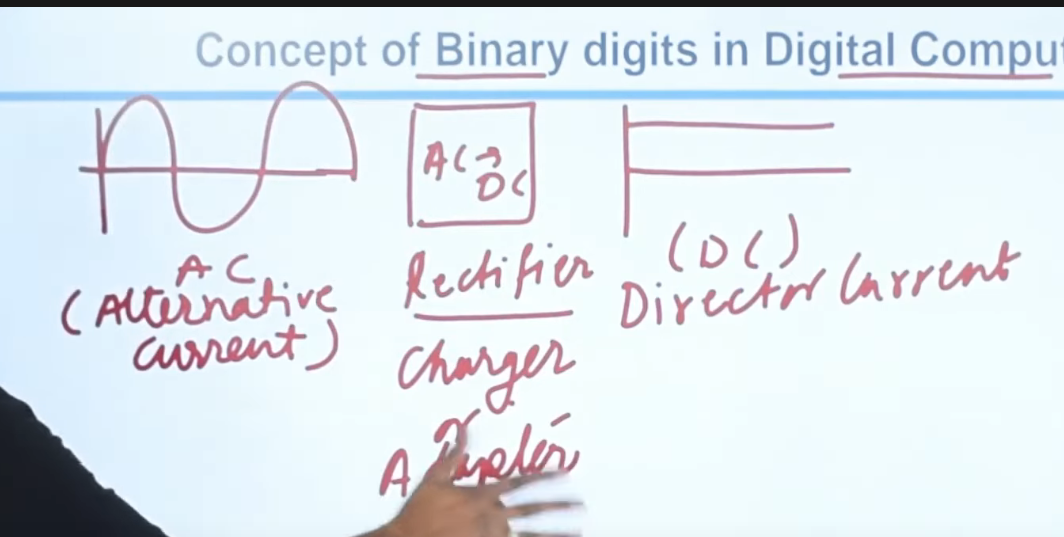 Concept of Binary digits in Digital Compu
AC → DC
AC
(Alternative
current)
Rectifier
Charger
(DC)
Director Current